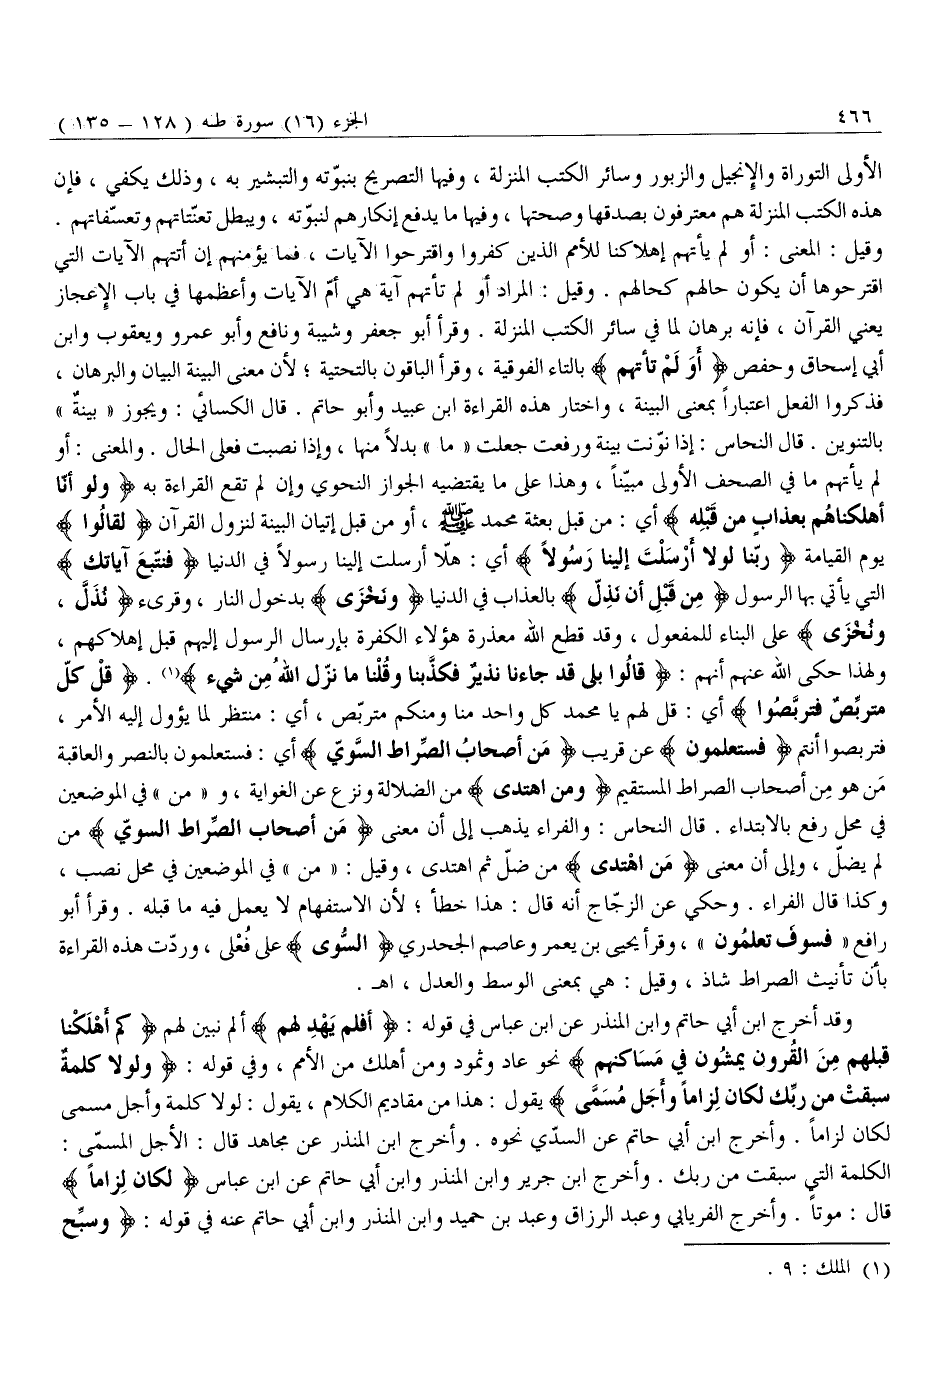 ٤٦٦
الجزء (١٦) سورة طـه ( ١٢٨ – ١٣٥ )
الأولى التوراة والإنجيل والزبور وسائر الكتب المنزلة ، وفيها التصريح بنبوّته والتبشير به ، وذلك يكفي ، فإن
هذه الكتب المنزلة هم معترفون بصدقها وصحتها ، وفيها ما يدفع إنكارهم لنبوّته ، ويبطل تعنّتاتهم وتعسّفاتهم .
وقيل : المعنى : أو لم يأتهم إهلاكنا للأمم الذين كفروا واقترحوا الآيات ، فما يؤمنهم إن أتتهم الآيات التي
اقترحوها أن يكون حالهم كحالهم . وقيل : المراد أو لم تأتهم آية هي أمّ الآيات وأعظمها في باب الإعجاز
يعني القرآن ، فإنه برهان لما في سائر الكتب المنزلة . وقرأ أبو جعفر وشيبة ونافع وأبو عمرو ويعقوب وابن
أبي إسحاق وحفص ﴿ أَوَ لَمْ تأتهم ﴾ بالتاء الفوقية ، وقرأ الباقون بالتحتية ؛ لأن معنى البينة البيان والبرهان ،
فذكروا الفعل اعتباراً بمعنى البينة ، واختار هذه القراءة ابن عبيد وأبو حاتم . قال الكسائي : ويجوز « بينةٌ »
بالتنوين . قال النحاس : إذا نوّنت بينة ورفعت جعلت « ما » بدلاً منها ، وإذا نصبت فعلى الحال . والمعنى : أو
لم يأتهم ما في الصحف الأولى مبيّناً ، وهذا على ما يقتضيه الجواز النحوي وإن لم تقع القراءة به ﴿ ولو أنّا
أهلكناهُم بعذابٍ من قَبْلِه ﴾ أي : من قبل بعثة محمد ﷺ ، أو من قبل إتيان البينة لنزول القرآن ﴿ لقالُوا ﴾
يوم القيامة ﴿ ربّنا لولا أَرْسَلْتَ إلينا رَسُولاً ﴾ أي : هلّا أرسلت إلينا رسولاً في الدنيا ﴿ فنتّبعَ آياتك ﴾
التي يأتي بها الرسول ﴿ مِن قَبْلِ أن نَذِلّ ﴾ بالعذاب في الدنيا ﴿ ونَخْزَى ﴾ بدخول النار ، وقرىء ﴿ نُذَلَّ ،
ونُخْزَى ﴾ على البناء للمفعول ، وقد قطع الله معذرة هؤلاء الكفرة بإرسال الرسول إليهم قبل إهلاكهم ،
ولهذا حكى الله عنهم أنهم : ﴿ قالُوا بلى قد جاءنا نذيرٌ فكذَّبنا وقُلْنا ما نزّل اللهُ مِن شيء ﴾(١) . ﴿ قلْ كلّ
متربِّصٌ فتربَّصُوا ﴾ أي : قل لهم يا محمد كل واحد منا ومنكم متربّص ، أي : منتظر لما يؤول إليه الأمر ،
فتربصوا أنتم ﴿ فستعلمون ﴾ عن قريب ﴿ مَن أصحابُ الصِّراط السَّويّ ﴾ أي : فستعلمون بالنصر والعاقبة
مَن هو مِن أصحاب الصراط المستقيم ﴿ ومن اهتدى ﴾ من الضلالة ونزع عن الغواية ، و « من » في الموضعين
في محل رفع بالابتداء . قال النحاس : والفراء يذهب إلى أن معنى ﴿ مَن أصحاب الصِّراط السويّ ﴾ من
لم يضلّ ، وإلى أن معنى ﴿ مَن اهْتدى ﴾ من ضلّ ثم اهتدى ، وقيل : « من » في الموضعين في محل نصب ،
وكذا قال الفراء . وحكي عن الزجّاج أنه قال : هذا خطأ ؛ لأن الاستفهام لا يعمل فيه ما قبله . وقرأ أبو
رافع « فسوفَ تعلمُون » ، وقرأ يحيى بن يعمر وعاصم الجحدري ﴿ السُّوى ﴾ على فُعْلى ، وردّت هذه القراءة
بأن تأنيث الصراط شاذ ، وقيل : هي بمعنى الوسط والعدل ، اهـ .
وقد أخرج ابن أبي حاتم وابن المنذر عن ابن عباس في قوله : ﴿ أفلم يَهْدِ لهم ﴾ ألم نبين لهم ﴿ كم أَهْلَكْنا
قبلهم مِنَ القُرون يمشُون في مَسَاكنهم ﴾ نحو عاد وثمود ومن أهلك من الأمم ، وفي قوله : ﴿ ولولا كلمةٌ
سبقتْ من ربِّك لكان لِزاماً وأَجَل مُسَمَّى ﴾ يقول : هذا من مقاديم الكلام ، يقول : لولا كلمة وأجل مسمى
لكان لزاماً . وأخرج ابن أبي حاتم عن السدّي نحوه . وأخرج ابن المنذر عن مجاهد قال : الأجل المسمّى :
الكلمة التي سبقت من ربك . وأخرج ابن جرير وابن المنذر وابن أبي حاتم عن ابن عباس ﴿ لكان لِزاماً ﴾
قال : موتاً . وأخرج الفريابي وعبد الرزاق وعبد بن حميد وابن المنذر وابن أبي حاتم عنه في قوله : ﴿ وسبِّح
(١) الملك : ٩ .